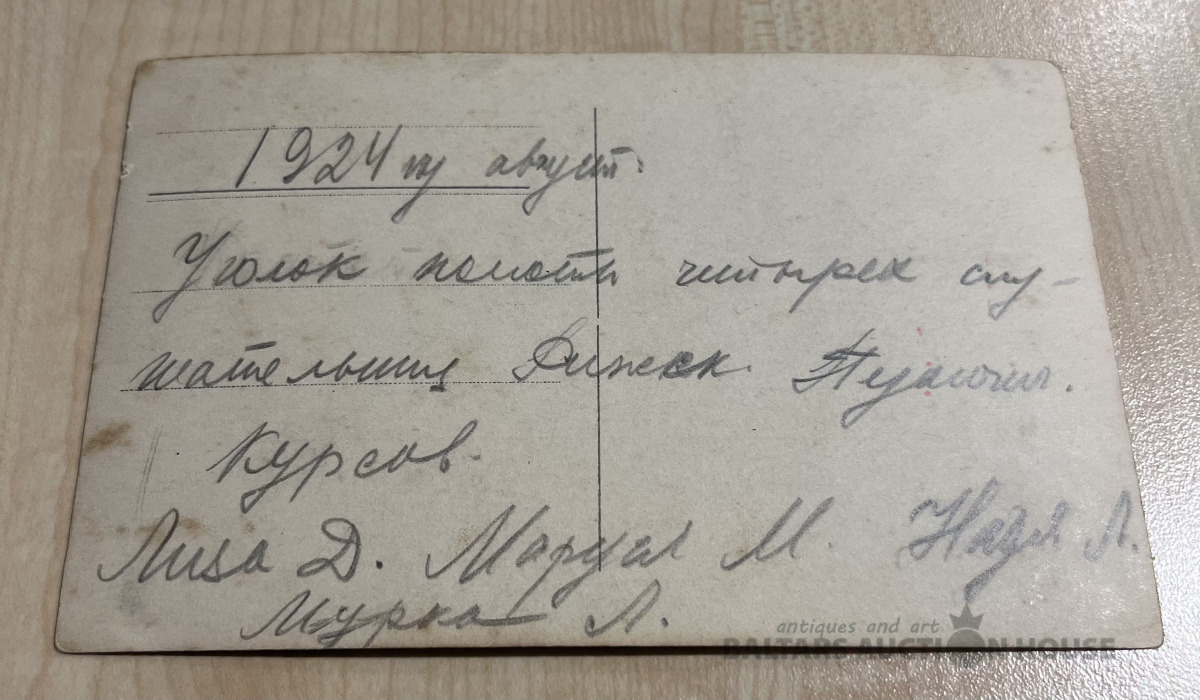 1924 гу август.
Уголок комнаты четырех слу-
шательниц Рижск. Педагогич.
Курсов.
Лиза Д. Маруся М. Надя Л.
Мурка Л.
antiques and art
BALTARS AUCTION HOUSE